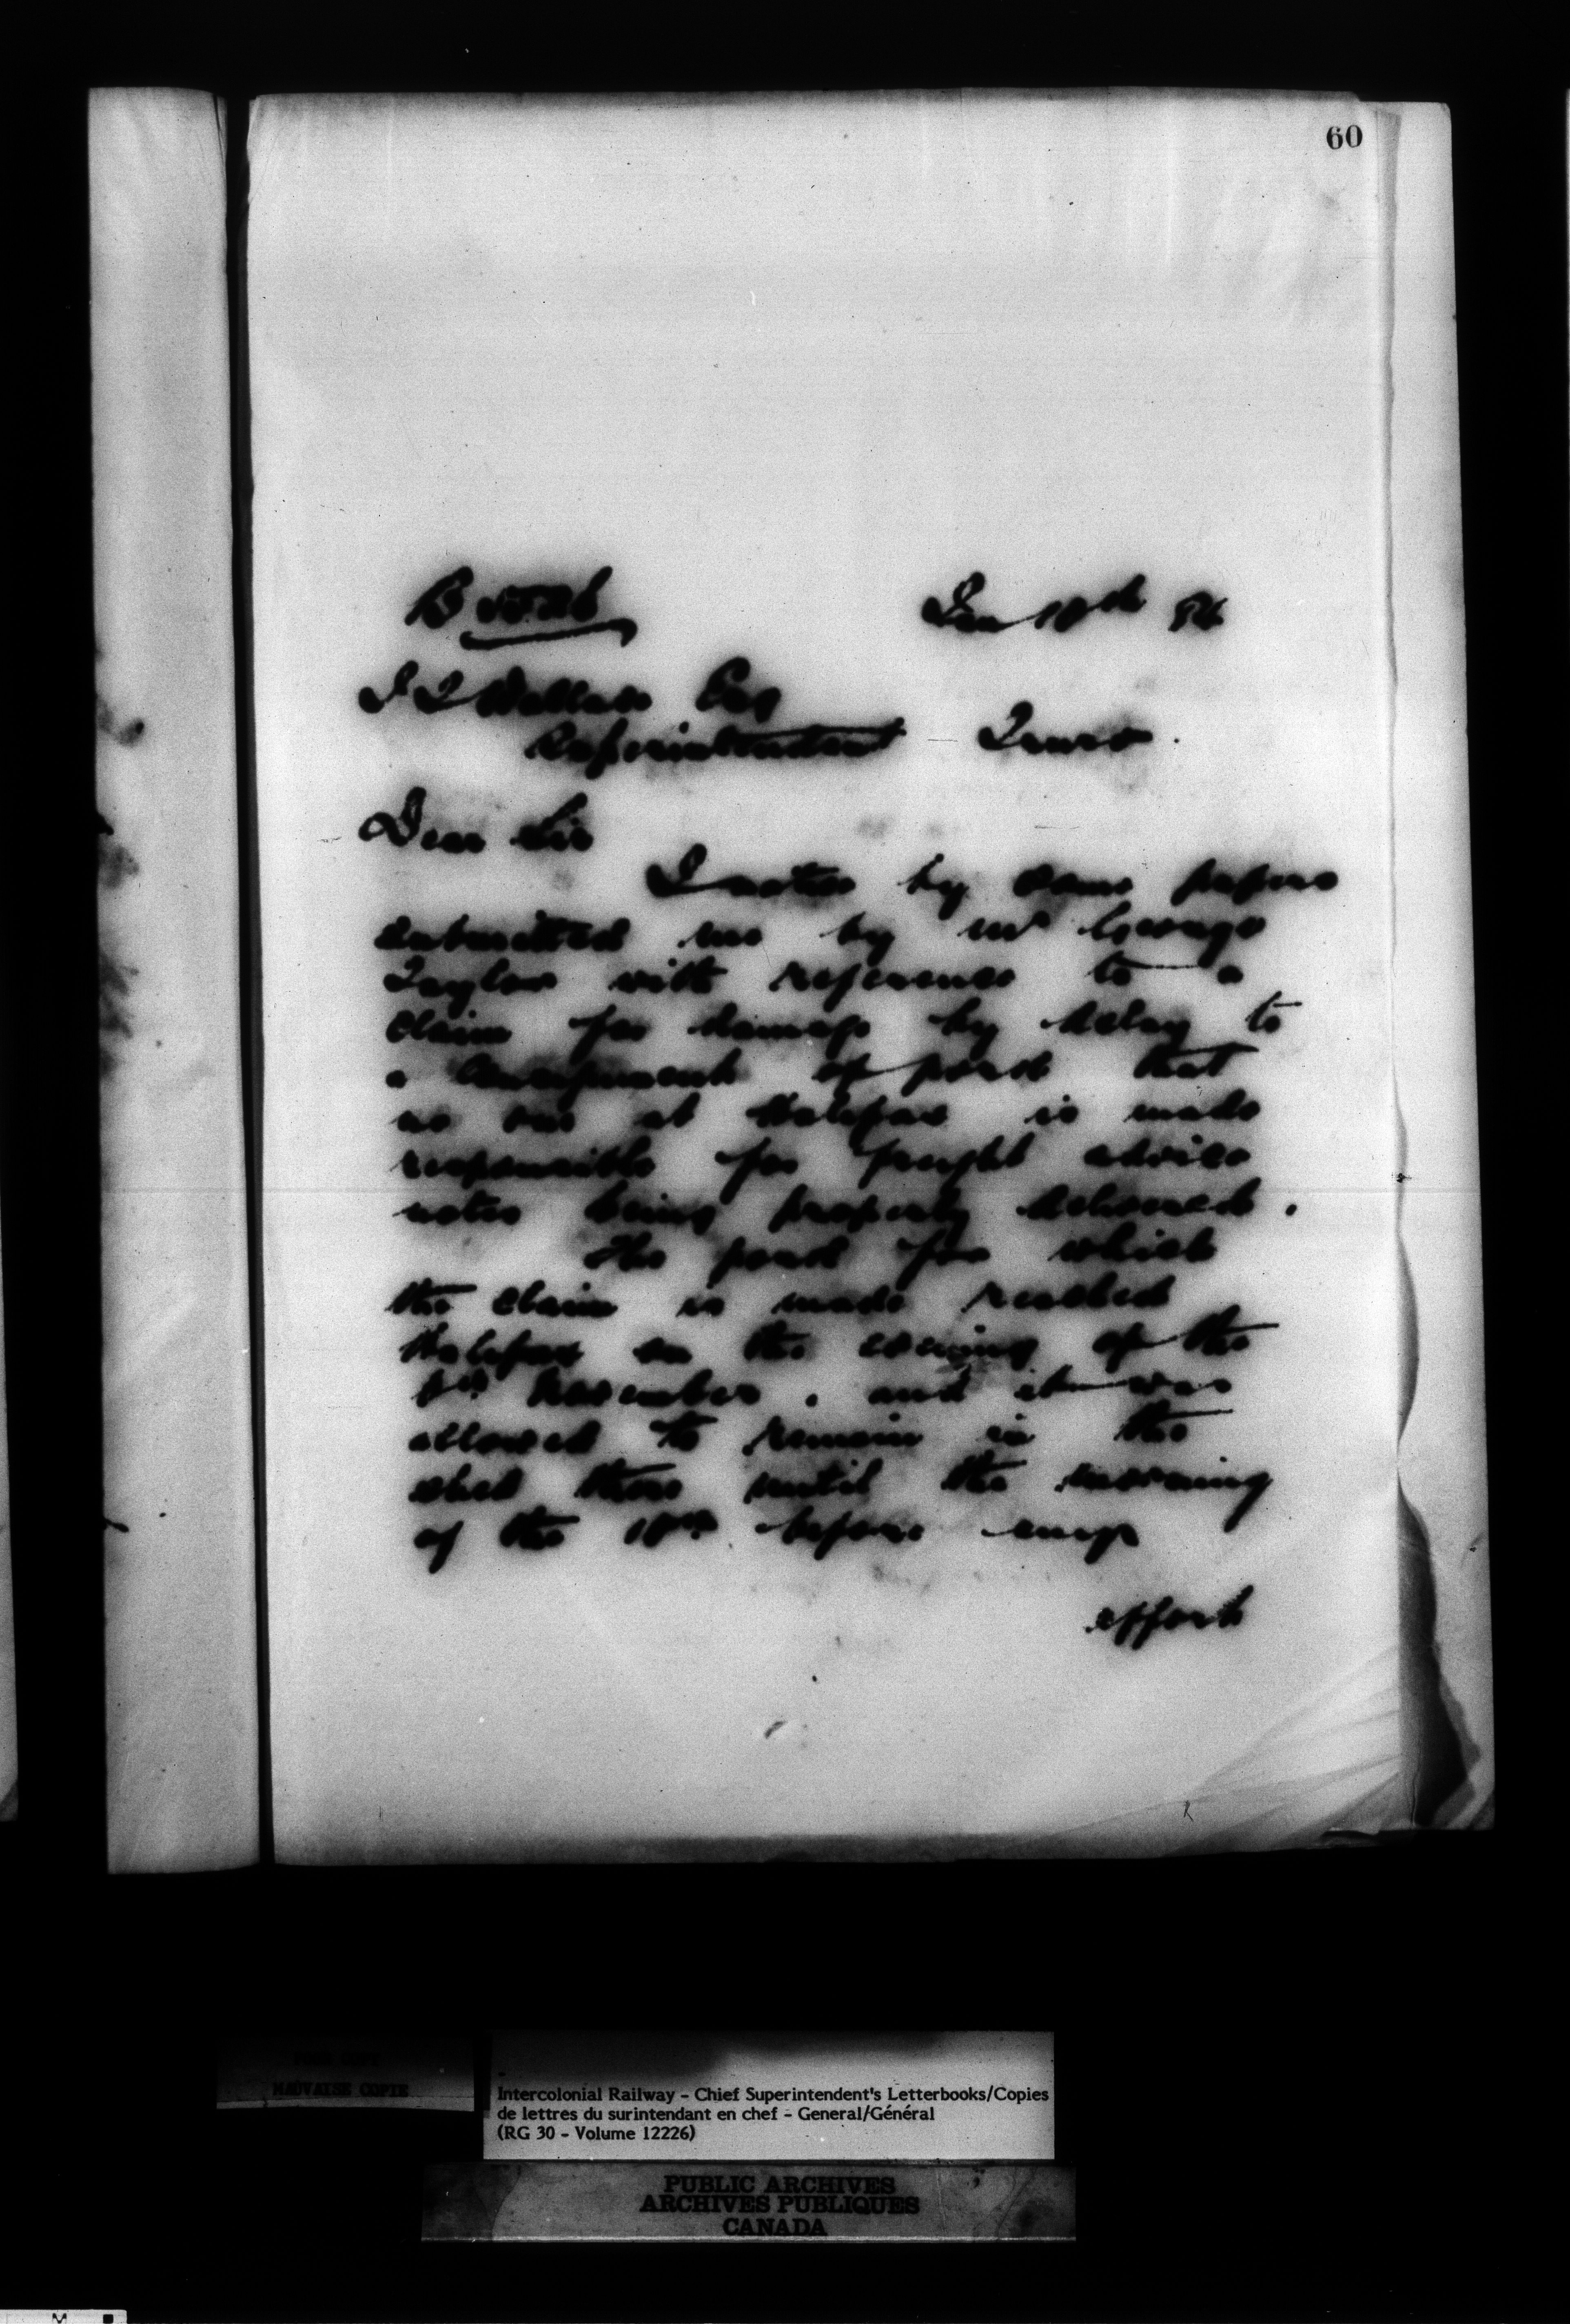 60
Jan 18th 86
J J Wallace Esq
Superintendent Truro.
Dear Sir
I notice by some papers
submitted me by Mr George
Taylor with reference to a
claim for damage by delay to
a consignment of pork that
no one at Halifax is made
responsible for freight advice
notes being properly delivered.
The pork for which
the claim is made reached
Halifax on the evening of the
November, and it was
allowed to remain in the
shed there until the morning
of the before any
effort
MAUVAISE COPIE
Intercolonial Railway - Chief Superintendent's Letterbooks/Copies
de lettres du surintendant en chef - General/Général
(RG 30 - Volume 12226)
PUBLIC ARCHIVES
ARCHIVES PUBLIQUES
CANADA